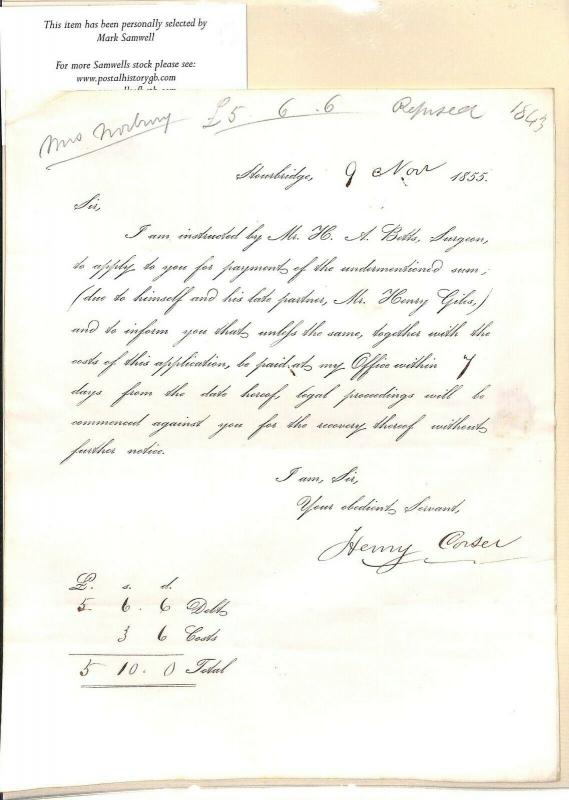 This item has been personally selected by
Mark Samwell
For more Samwells stock please see:
www.postalhistorygb.com
Mrs Norbury £5 6 . 6 Refused 1843
Stourbridge, 9 Nov 1855.
Sir,
I am instructed by Mr. H. A. Betts, Surgeon,
to apply to you for payment of the undermentioned sum;
(due to himself and his late partner, Mr. Henry Giles,)
and to inform you that unless the same, together with the
costs of this application, be paid at my Office within 7
days from the date hereof, legal proceedings will be
commenced against you for the recovery thereof without
further notice.
I am, Sir,
Your obedient Servant,
Henry Corser
£. s. d.
5 6. 6 Debt
3 6 Costs
5 10. 0 Total